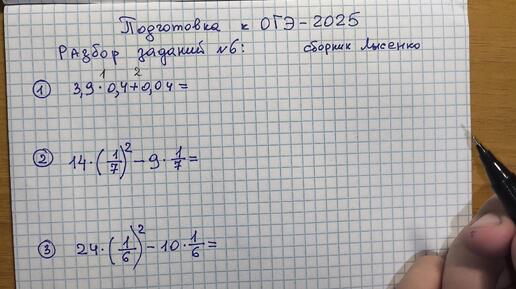 Подготовка к ОГЭ-2025
РАзбор заданий №6: сборник Лысенко
1 2
① 3,9 · 0,4 + 0,04 =
② 14 · (1/7)² - 9 · 1/7 =
③ 24 · (1/6)² - 10 · 1/6 =